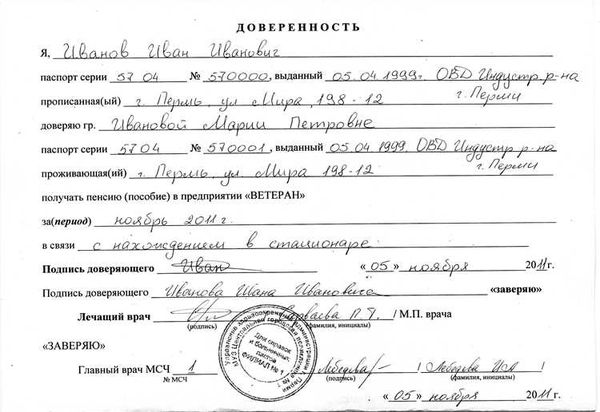 ДОВЕРЕННОСТЬ
Я, Иванов Иван Иванович
паспорт серии 57 04 № 570000, выданный 05.04.1999г. ОВД Индустр р-на
г. Перми
прописанная(ый) г. Пермь, ул Мира, 198-12
доверяю гр. Ивановой Марии Петровне
паспорт серии 5704 № 570001, выданный 05.04 1999, ОВД Индустр. р-на
г. Перми
проживающая(ий) г. Пермь, ул. Мира 198-12
получать пенсию (пособие) в предприятии «ВЕТЕРАН»
за(период) ноябрь 2011 г.
в связи с нахождением в стационаре
Подпись доверяющего Иван «05» ноября 2011г.
Подпись доверяющего Иванова Ивана Ивановича «заверяю»
Лечащий врач / М.П. врача
(подпись) (фамилия, инициалы)
«ЗАВЕРЯЮ»
Для справок
и больничных
листов
ФИЛИАЛ № 1
Главный врач МСЧ 1 Лебедева
№ МСЧ (подпись) (фамилия, инициалы)
«05» ноября 2011г.